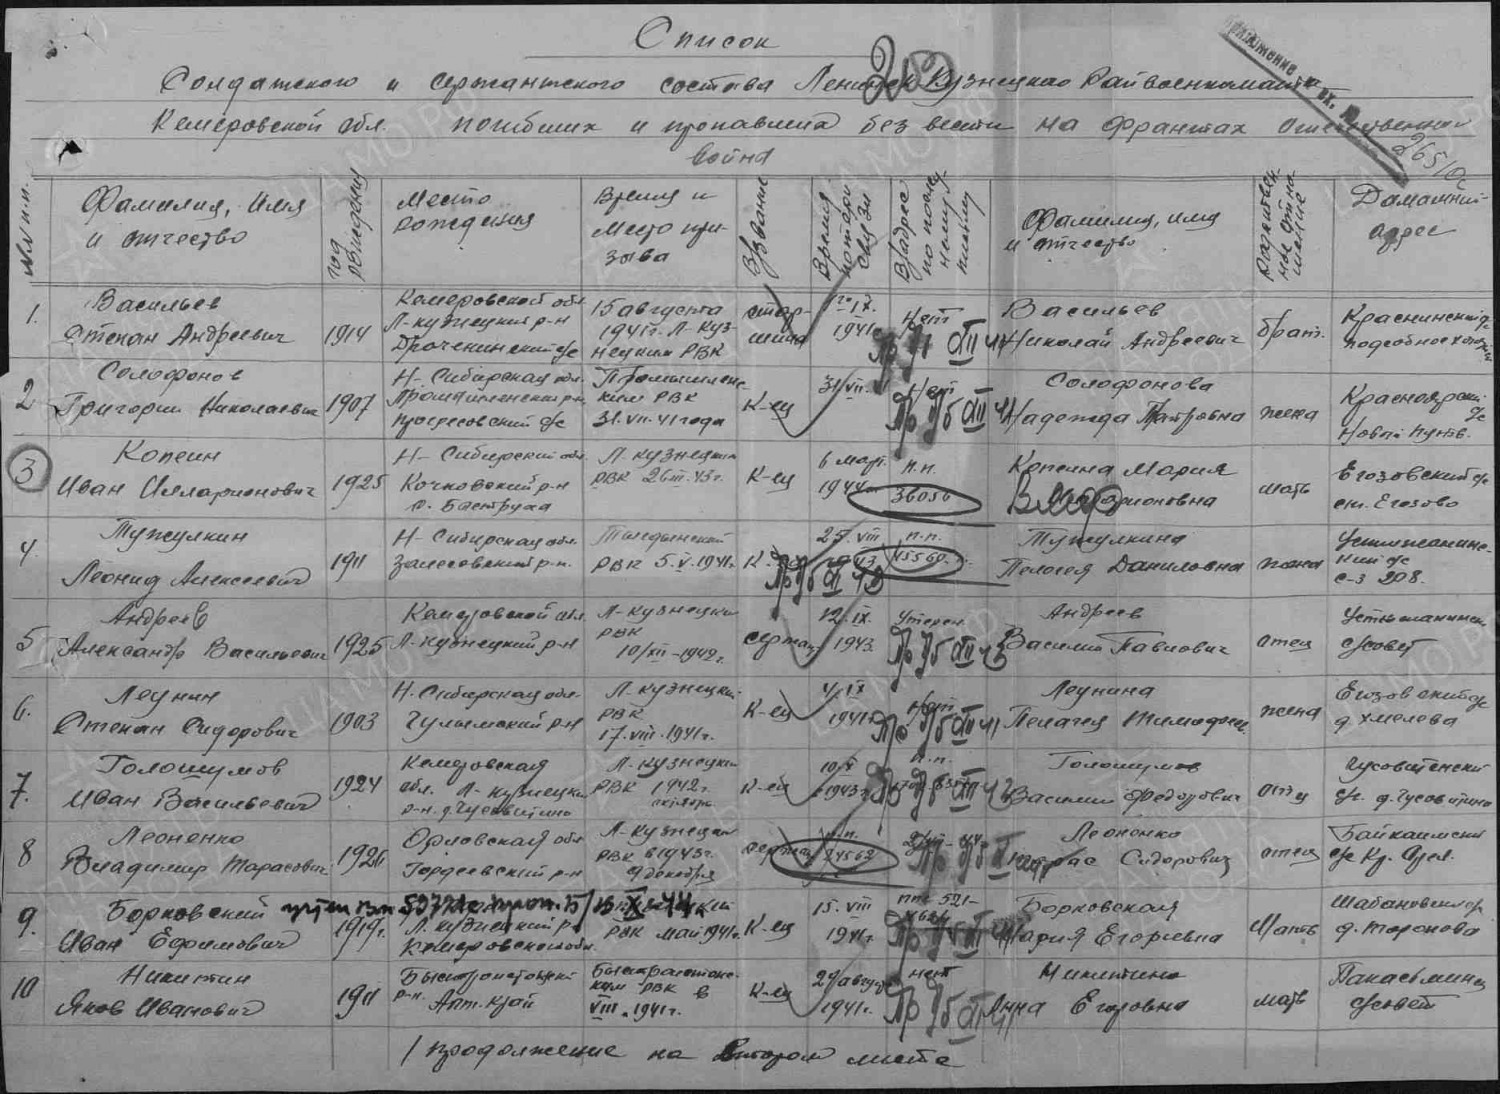 Список
Солдатского и сержантского состава Ленинск Кузнецкао Райвоенкомата
Кемеровской обл. погибших и пропавших без вести на франтах отечественной
война
265/02
Приложение
№№ п.п.
Фамилия, Имя
и отчество
год рождения
Место
рождения
Время и
Место при-
зыва
В/звание
Время потери связи
В/адрес по последнему письму
Фамилия, имя
и отчество
Родственное отношение
Домашний
адрес
1.
Васильев
Степан Андреевич
1914
Кемеровской обл.
Л-кузнецкий р-н
Драченинский с/с
15 августа
1941г. Л-Куз-
нецким РВК
стар-
шина
IX
1941
Нет
Васильев
Николай Андреевич
брат.
Краснинский с/с
подсобное хоз.
2
Солофонов
Григорий Николаевич
1907
Н-Сибирская обл.
Промышленский р-н
прогресовский с/с
Промышленс-
ким РВК
31.VII.41 года
К-ец
31/VII
Нет
Солофонова
Надежда Петровна
жена
Красноярский
с/с
Новый путь.
3
Копеин
Иван Илларионович
1925
Н-Сибирский обл.
Кочковский р-н
с. Баструха
Л. кузнецким
РВК 26 III. 43 г.
К-ец
6 март.
1944г.
п.п.
36056
Копеина Мария
Илларионовна
мать
Егозовский с/с
ст. Егозово
4.
Тужулкин
Леонид Алексеевич
1911
Н-Сибирская обл.
Залесовский р-н.
РВК 5.V.1941г.
К.
25.VIII
1943
п.п.
45560
Тужулкина
Пелогея Даниловна
жена
с-з 208.
5
Андреев
Александр Васильевич
1925
Кемеровской обл.
Л-кузнецкий р-н
Л-кузнецким
РВК
10/XII-1942г.
сержан
12.IX.
1943
Утерен
Андреев
Василий Павлович
отец
с/совет
6.
Леунин
Степан Сидорович
1903
Н.Сибирская обл.
Чулымский р-н
Л.кузнецкий
РВК
17.VIII.1941г.
К-ец
4/IX
1941г
Нет
Леунина
Пелагея Тимофеев.
жена
Егозовский с/с
д. хмелева
7.
Голошумов
Иван Васильевич
1924
Кемеровская
обл. Л-кузнецкий
р-н. д. Чусовитино
Л-кузнецким
РВК 1942г.
октябрь
К-ец
10/X
1943г.
п.п.
Голошумов
Василий Федорович
отец
Чусовитенский
с/с. д. Чусовитино
8
Леоненко
Владимир Тарасович
1926
Орловская обл
Гордеевский р-н
Л-кузнецким
РВК в 1943г.
декабря
сержан
п.п.
24562
Леоненко
Тарас Сидорович
отец
Байкаимский
с/с Кр. Орел.
9.
Борковский
Иван Ефимович
1919г.
Л. кузнецкий р-н
Кемеровской обл.
РВК май 1941г.
К-ец
15.VIII
1941г
ппс 521-
Борковская
Мария Егоревна
Мать
Шабановский с/с
д. Торопова
10
Никитин
Яков Иванович
1911
Быстроистокский
р-н. Алт. край
Быстроистокс-
ким РВК в
VIII. 1941г.
К-ец
29 август
1941г.
нет
Никитина
Анна Егоровна
мать
Панасьминск
с/совет
/ продолжение на втором листе